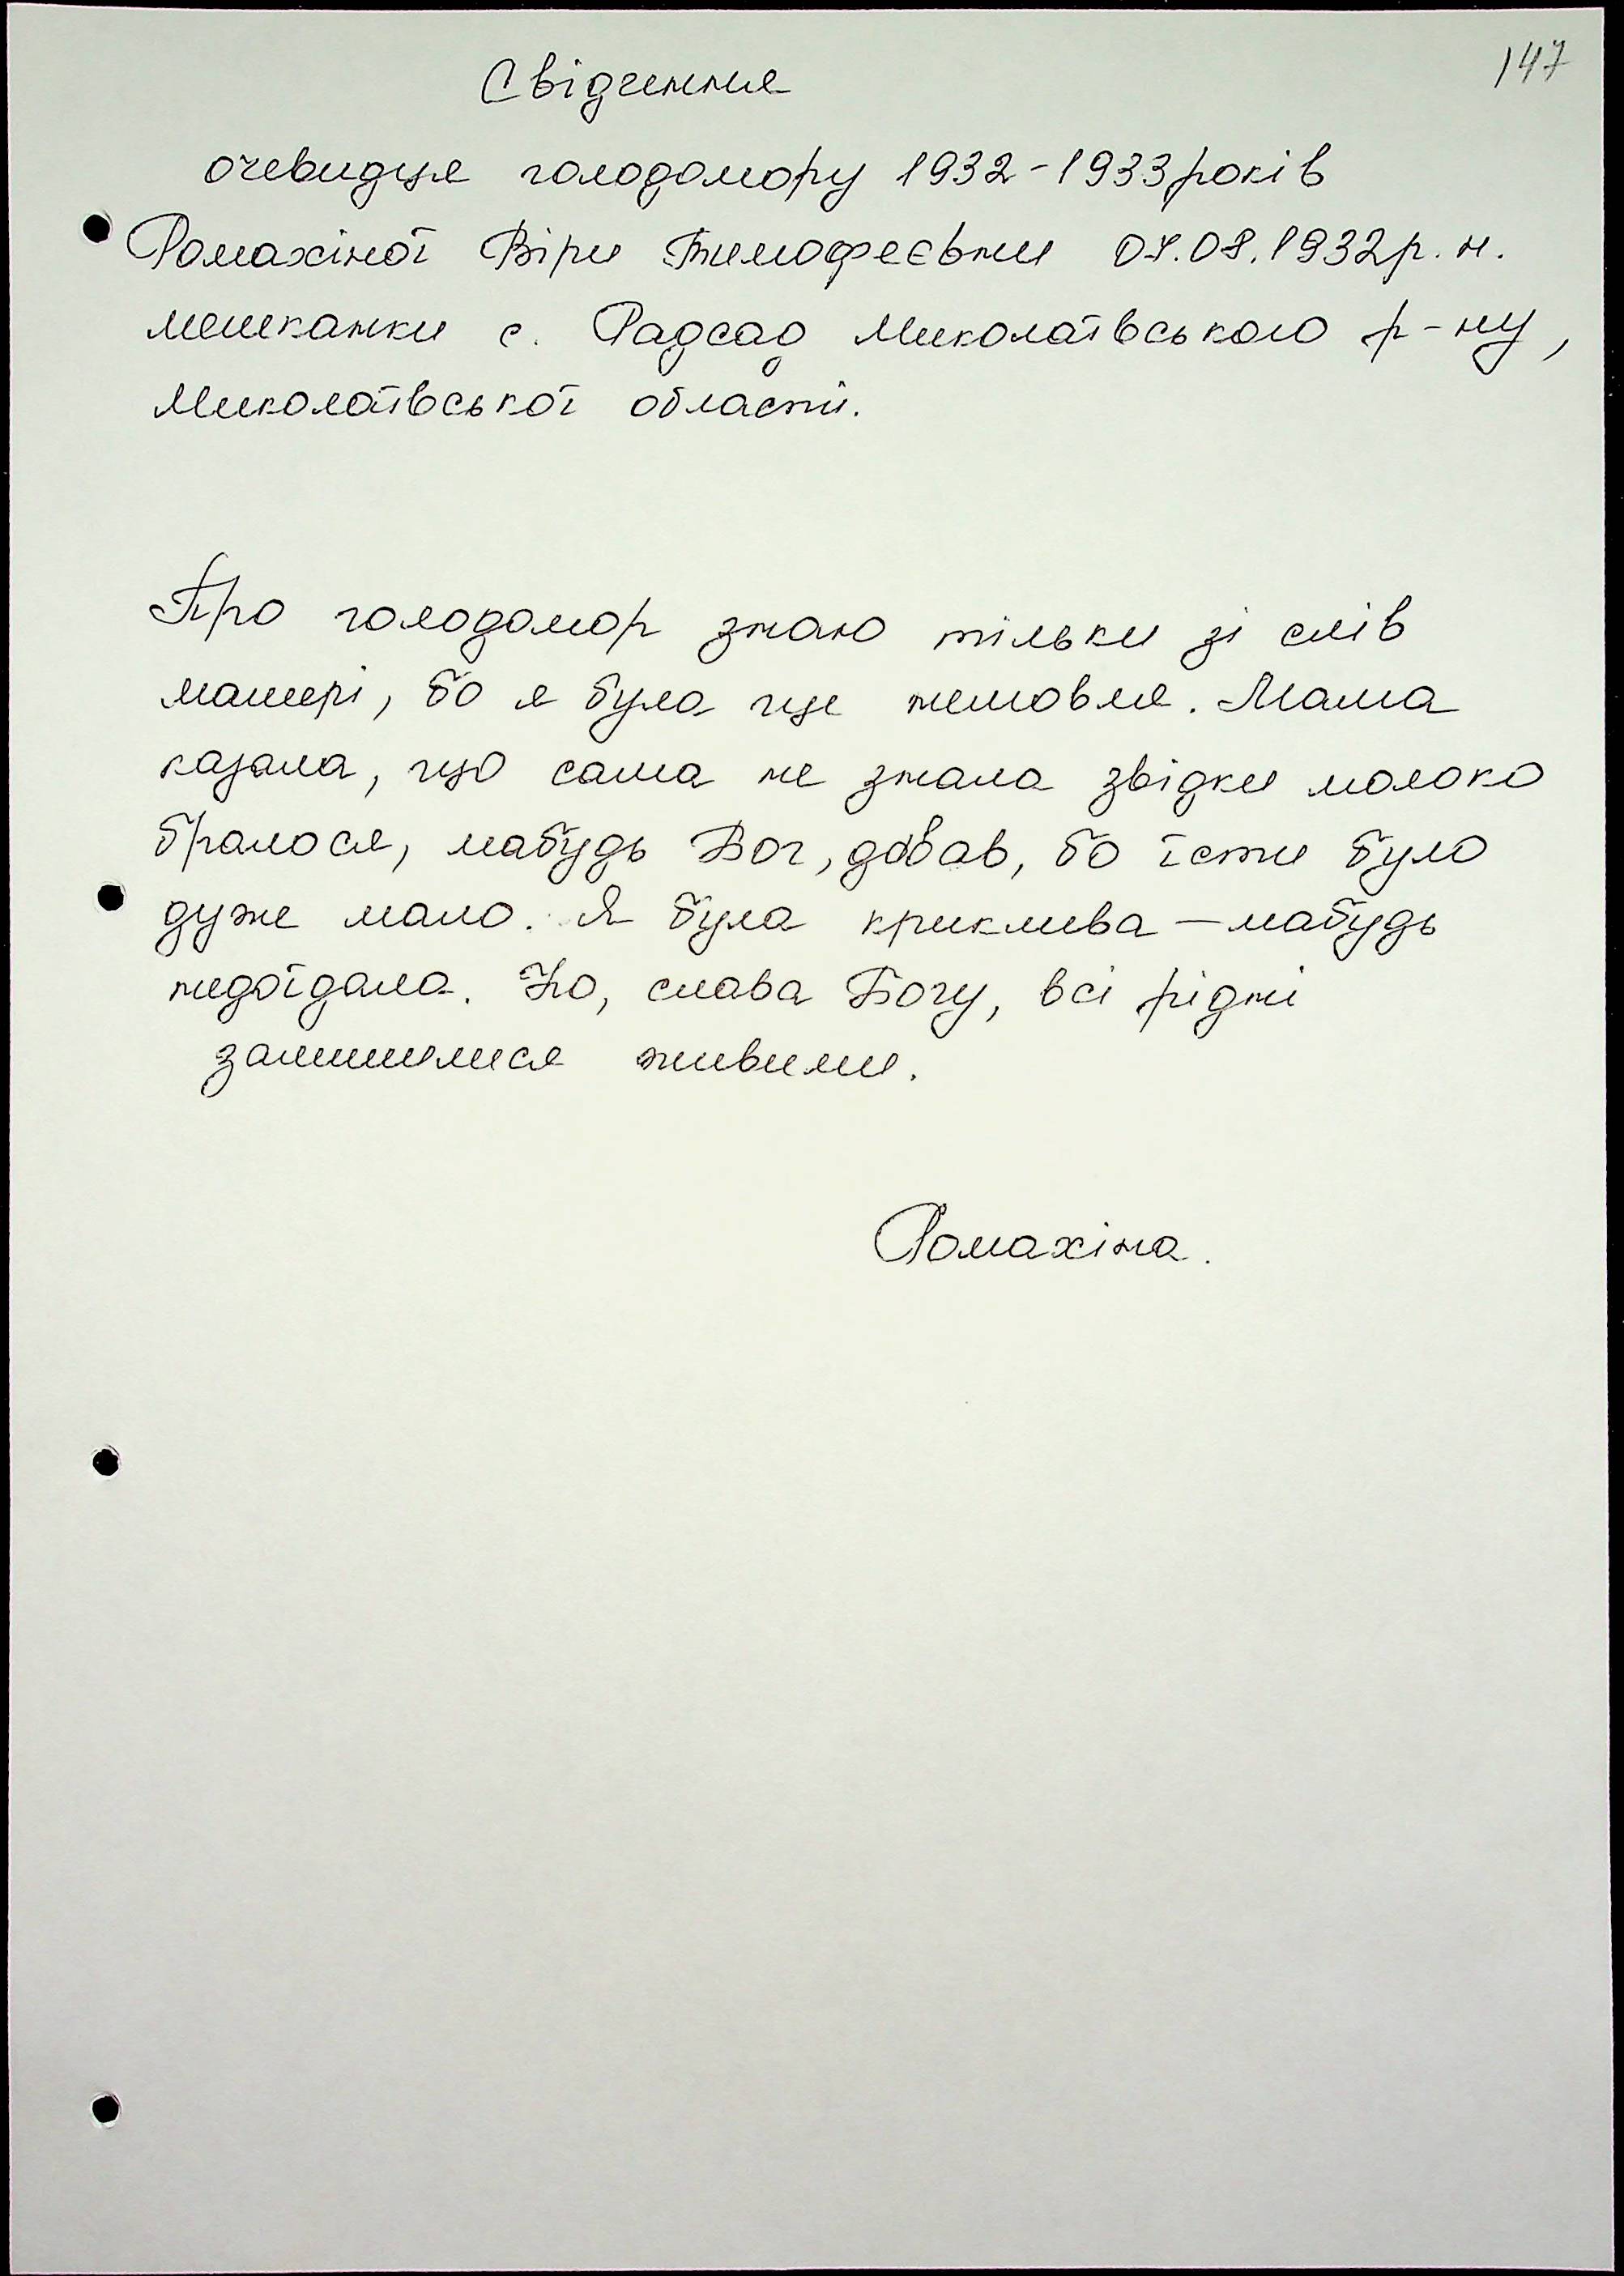 147
Свідчення
очевидця голодомору 1932-1933 років
Ромахіної Віри Тимофеєвни 07.08.1932 р. н.
мешканки с. Радсад Миколаївського р-ну,
Миколаївської області.
Про голодомор знаю тільки зі слів
матері, бо я була ще немовля. Мама
казала, що сама не знала звідки молоко
бралося, мабудь Бог, давав, бо їсти було
дуже мало. Я була криклива — мабудь
недоїдала. Но, слава Богу, всі рідні
залишилися живими.
Ромахіна.